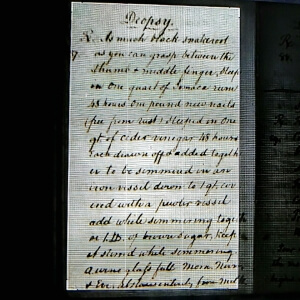 Dropsy.
℞. As much black snakeroot
as you can grasp between the
thumb & middle finger, steep
in one quart of Jamaca rum
48 hours one pound new nails
(free from rust) steeped in one
qt of cider vinegar 48 hours
each drawn off & added togeth
er to be simmered in an
iron vessel down to 1 qt, cov
ered with a pewter vessel
add while simmering togeth
er 1 lb. of brown sugar, keep
it stired while simmering.
a wine glass full Morn, Noon,
&